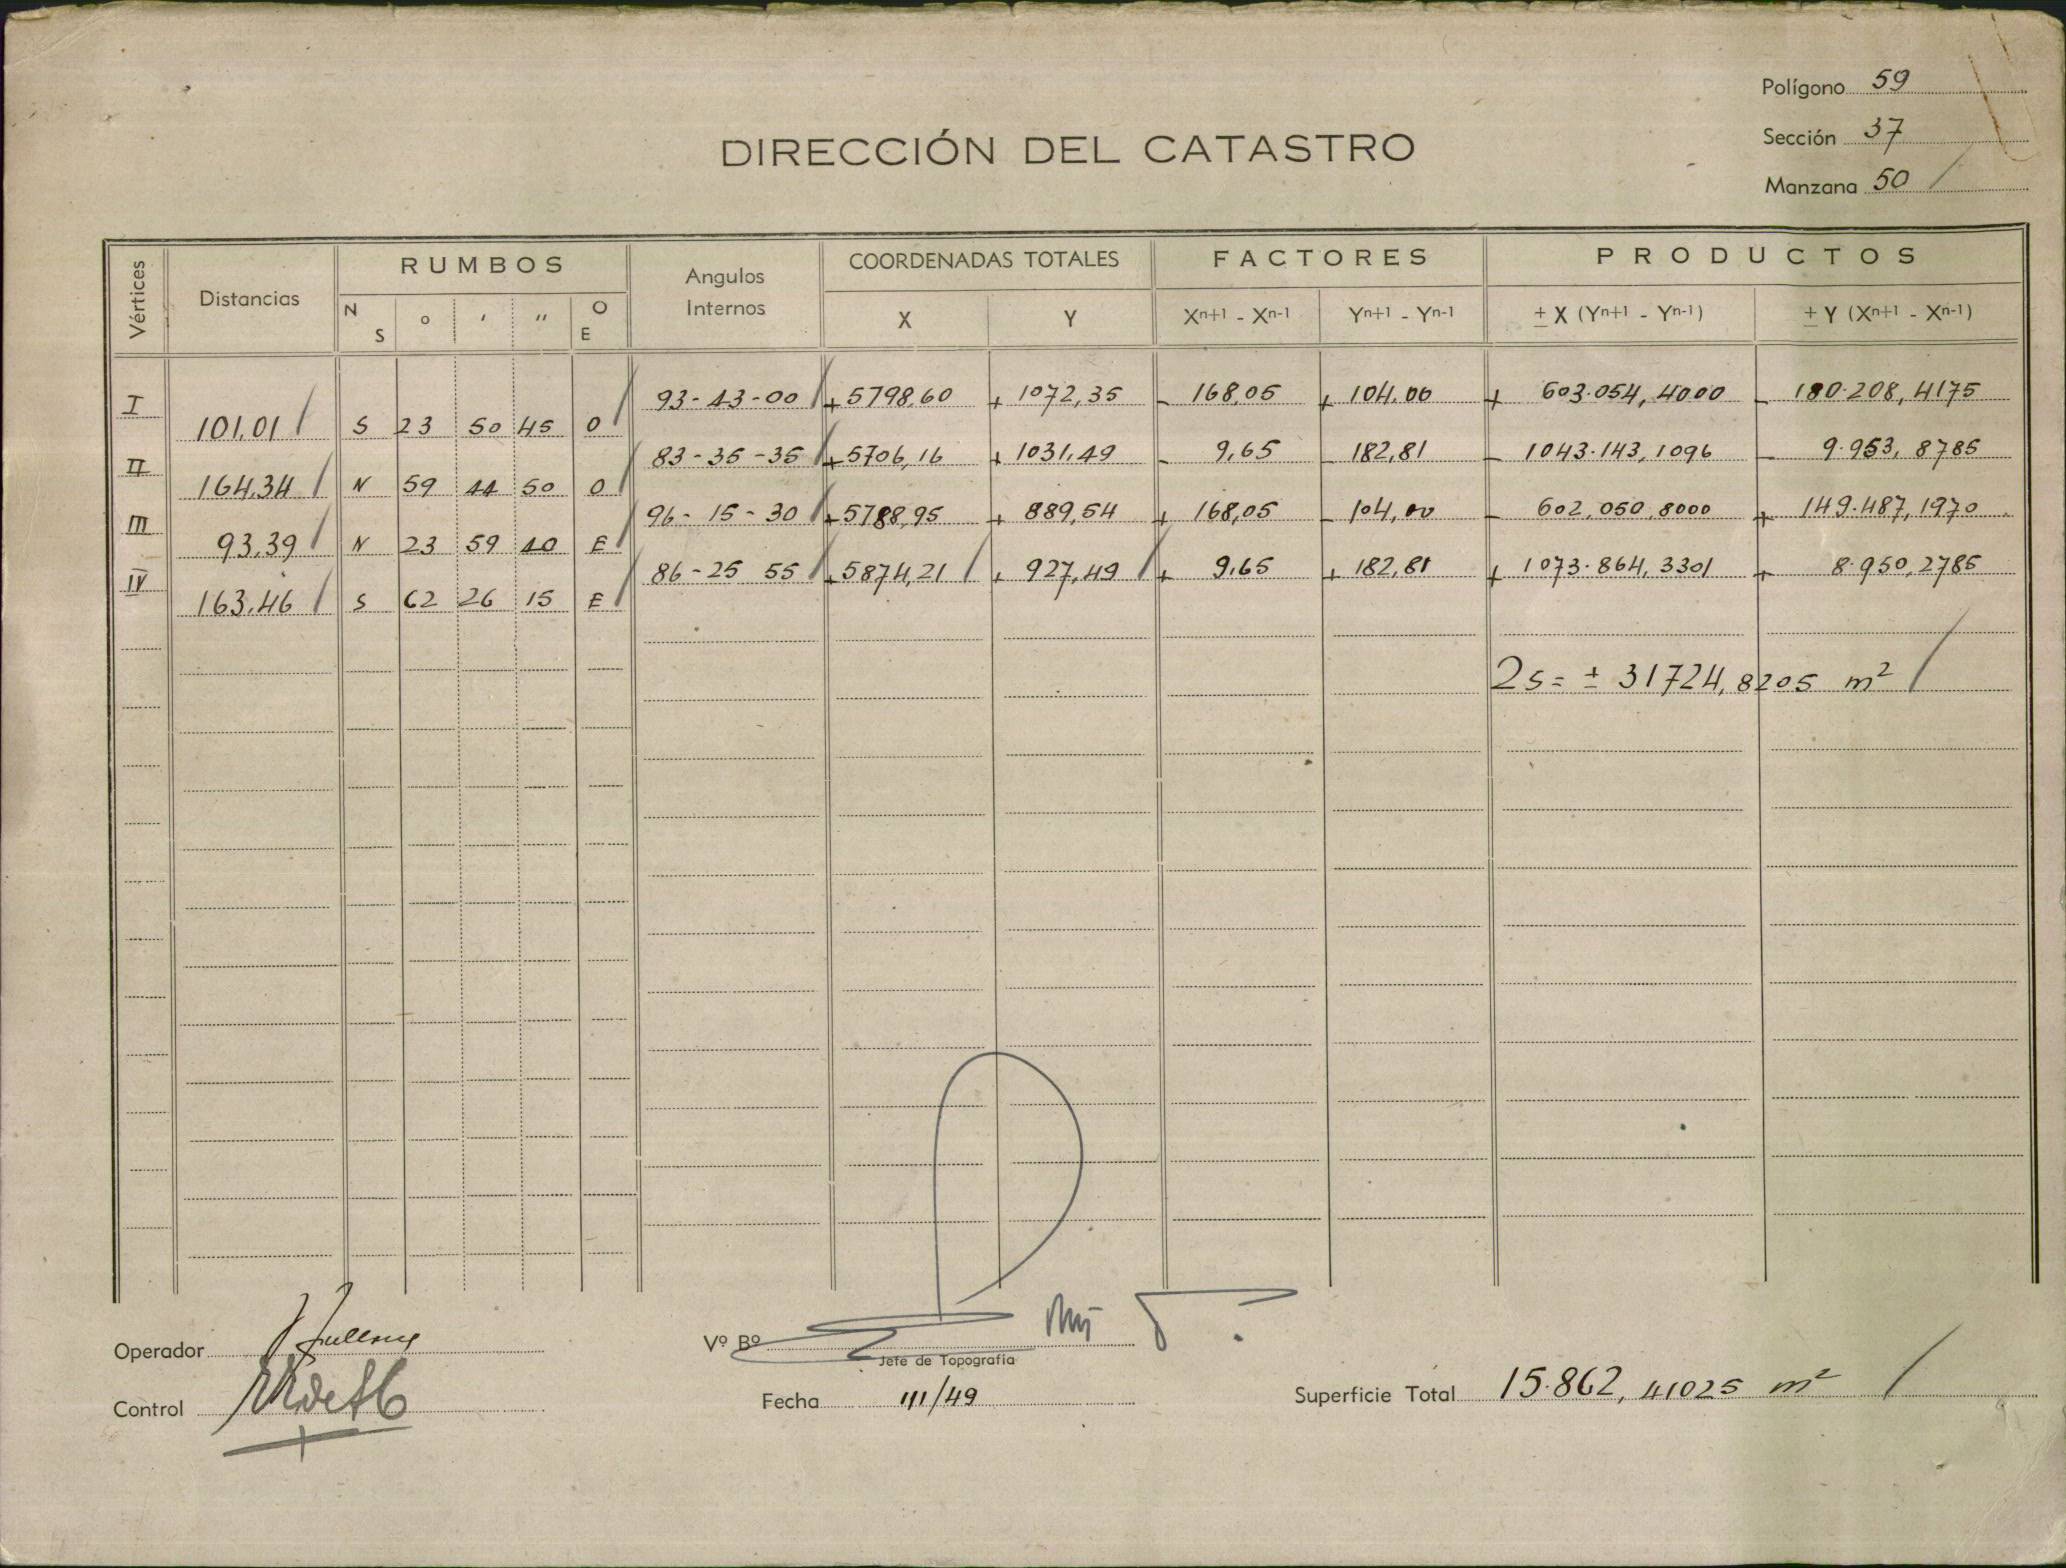 Polígono 59
Sección 37
Manzana 50 /
DIRECCIÓN DEL CATASTRO
Vértices Distancias RUMBOS Angulos Internos COORDENADAS TOTALES FACTORES PRODUCTOS
N S o ' '' O E X Y Xn+1 - Xn-1 Yn+1 - Yn-1 ± X (Yn+1 - Yn-1) ± Y (Xn+1 - Xn-1)
I 93-43-00 / +5798,60 + 1072,35 - 168,05 + 104,00 + 603.054,4000 - 180.208,4175
101,01 / S 23 50 45 O /
II 83-35-35 / +5706,16 + 1031,49 - 9,65 - 182,81 - 1043.143,1096 - 9.953,8785
164,34 / N 59 44 50 O /
III 96-15-30 / +5788,95 + 889,54 + 168,05 - 104,00 - 602,050,8000 + 149.487,1970
93,39 / N 23 59 40 E /
IV 86-25 55 / +5874,21 / + 927,49 / + 9,65 + 182,81 + 1073.864,3301 + 8.950,2785
163,46 / S 62 26 15 E /
2s= ± 31724,8205 m² /
Operador
Vº Bº
Jefe de Topografía
Control
Fecha III/49
Superficie Total 15.862,41025 m² /